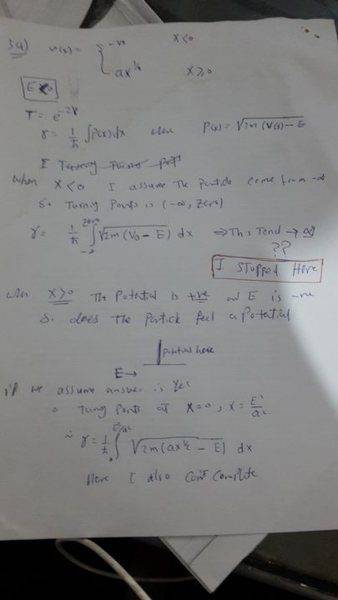 3a) V(x) = { -V0 x<0
ax^1/2 x≥0
E<0
T = e^-2γ
γ = 1/ħ ∫P(x)dx where P(x) = √2m(V(x)-E
I Turning Points
when x<0 I assume the particle come from -∞
So Turning Points is (-∞, zero)
γ = 1/ħ ∫ zero -∞ √2m(V0-E) dx ⇒ This Tend → ∞
??
I Stopped Here
when x>0 The Potential is +ve and E is -ve
So does The Particle feel a Potential
Potential here
E→
if we assume answer is Yes
Turning Points at x=0, x = E²/a²
∴ γ = 1/ħ ∫ E²/a² 0 √2m(ax^1/2 - E) dx
Here I also Can't Complete